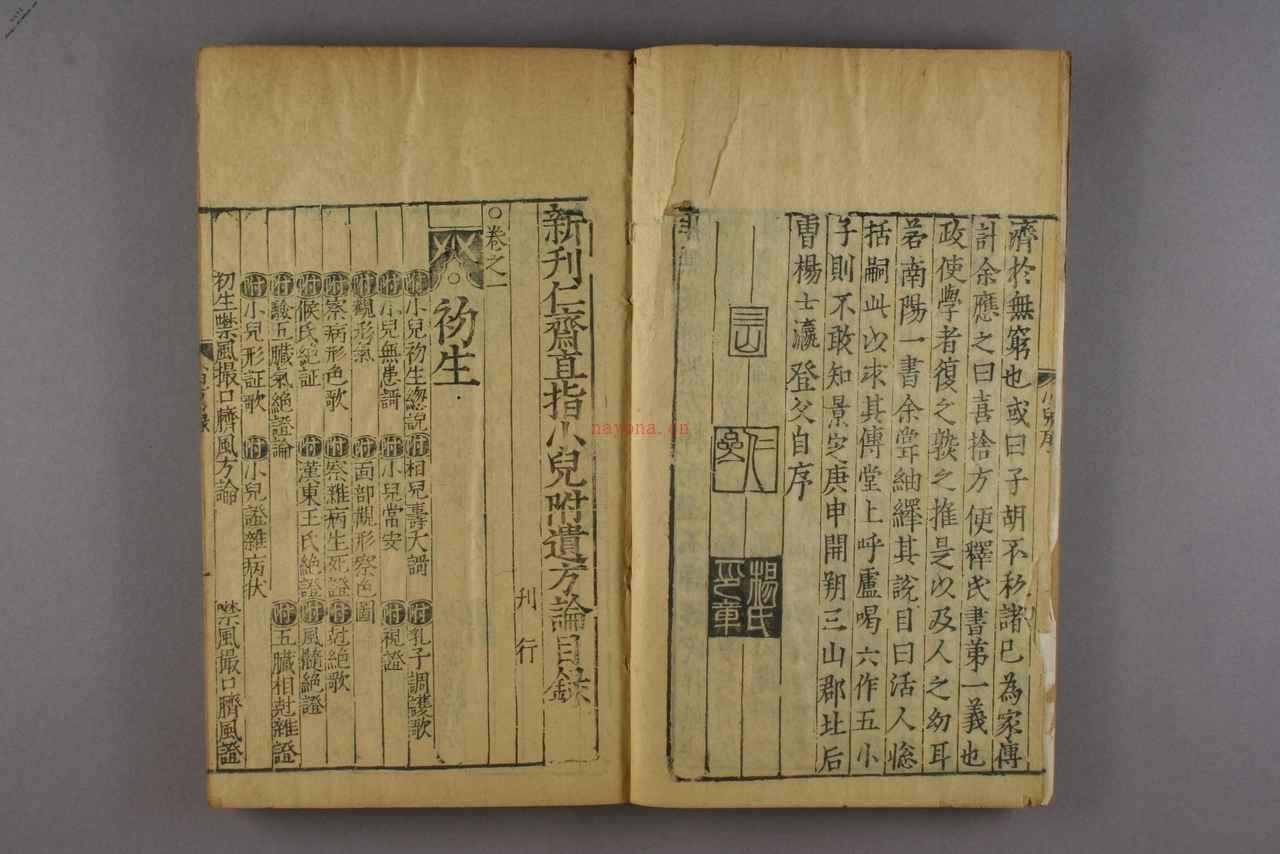 濟於無窮也或曰子胡不私諸已為家傳
計余應之曰喜捨方便釋氏書第一義也
政使學者復之敩之推是以及人之幼耳
若南陽一書余嘗紬繹其說目曰活人總
括嗣此以求其傳堂上呼盧喝六作五小
子則不敢知景定庚申開朔三山郡圵后
曺楊士瀛登父自序
三山
仁
楊氏
印章
小兒序
新刋仁齋直指小兒附遺方論目録
刋行
○卷之一
初生
附小兒初生總說 附相兒壽夭謌 附乳子調護歌
附小兒無患謌 附小兒常安 附視證
附觀形氣 附面部觀形察色圖
附察病形色歌 附察雜病生死證 附尅絶歌
附候氏絶証 附漢東王氏絶證 附風髓絶證
附驗五臟氣絶證論 附五臟相尅雜證
附小兒形証歌 附小兒證雜病狀
初生噤風撮口臍風方論 噤風撮口臍風證
nayona.cn